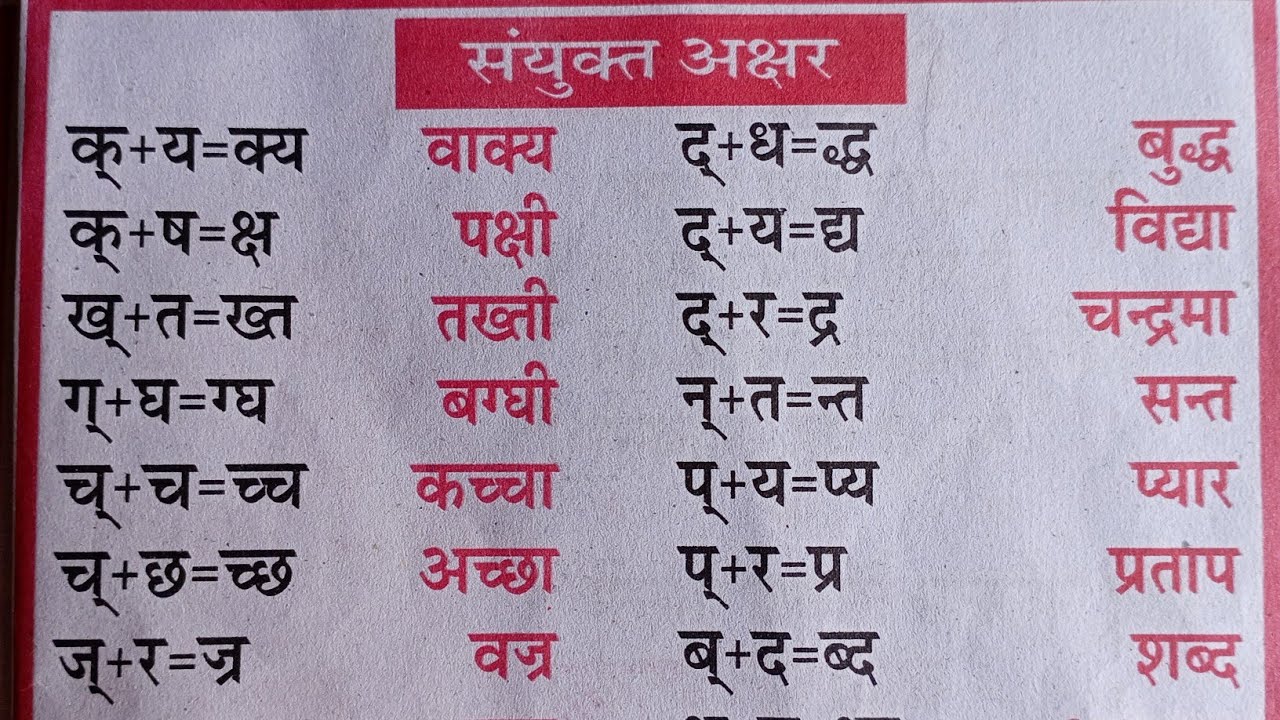 संयुक्त अक्षर
क्+य=क्य वाक्य द्+ध=द्ध बुद्ध
क्+ष=क्ष पक्षी द्+य=द्य विद्या
ख्+त=ख्त तख्ती द्+र=द्र चन्द्रमा
ग्+घ=ग्घ बग्घी न्+त=न्त सन्त
च्+च=च्च कच्चा प्+य=प्य प्यार
च्+छ=च्छ अच्छा प्+र=प्र प्रताप
ज्+र=ज्र वज्र ब्+द=ब्द शब्द